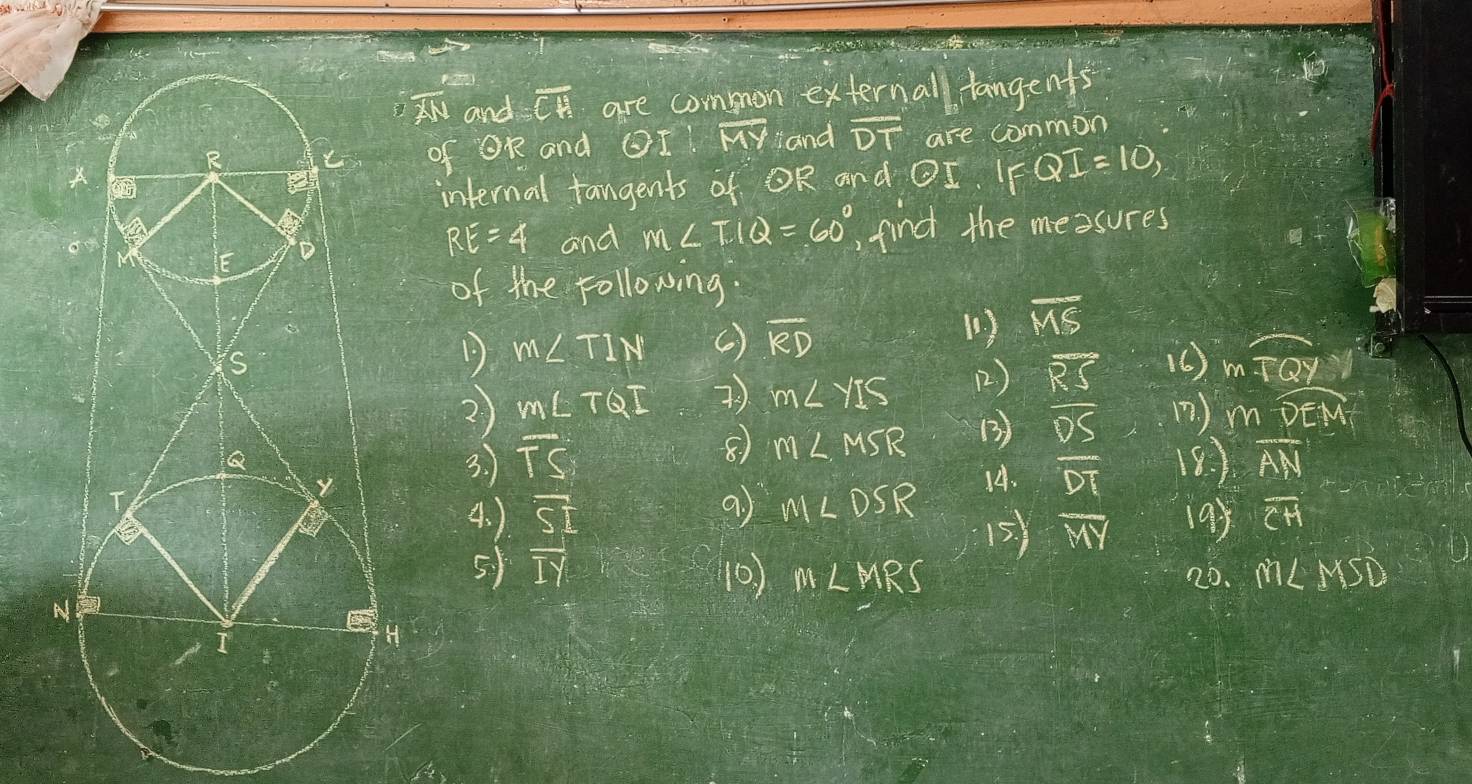 AN and CH are common external tangents
of ⊙R and ⊙I. MY and DT are common
internal tangents of ⊙R and ⊙I. IF QI = 10,
RE = 4 and m∠TIQ = 60°, find the measures
of the following.
1.) m∠TIN
2.) m∠TQI
3.) TS
4.) SI
5.) IY
6.) RD
7.) m∠YIS
8.) m∠MSR
9.) m∠DSR
10.) m∠MRS
11.) MS
12.) RS
13.) DS
14. DT
15.) MY
16.) m TQY
17.) m DEM
18.) AN
19.) CH
20. m∠MSD
A
R
C
M
E
D
S
Q
T
Y
N
I
H